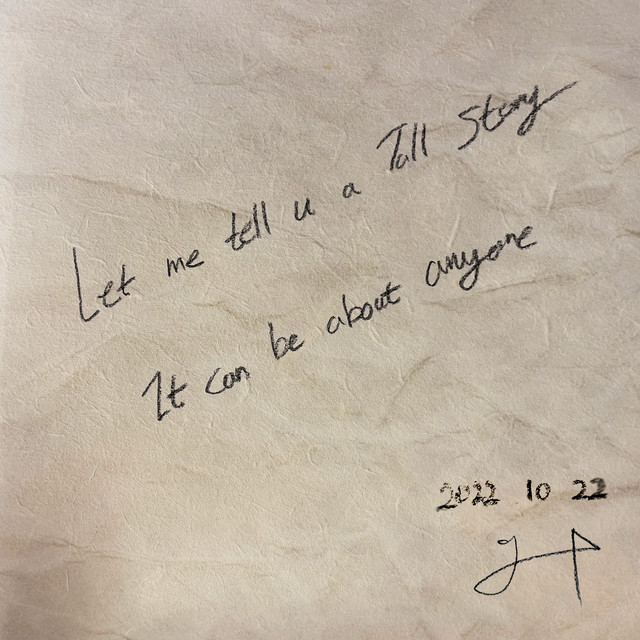 Let me tell u a Tall Story
It can be about anyone
2022 10 22